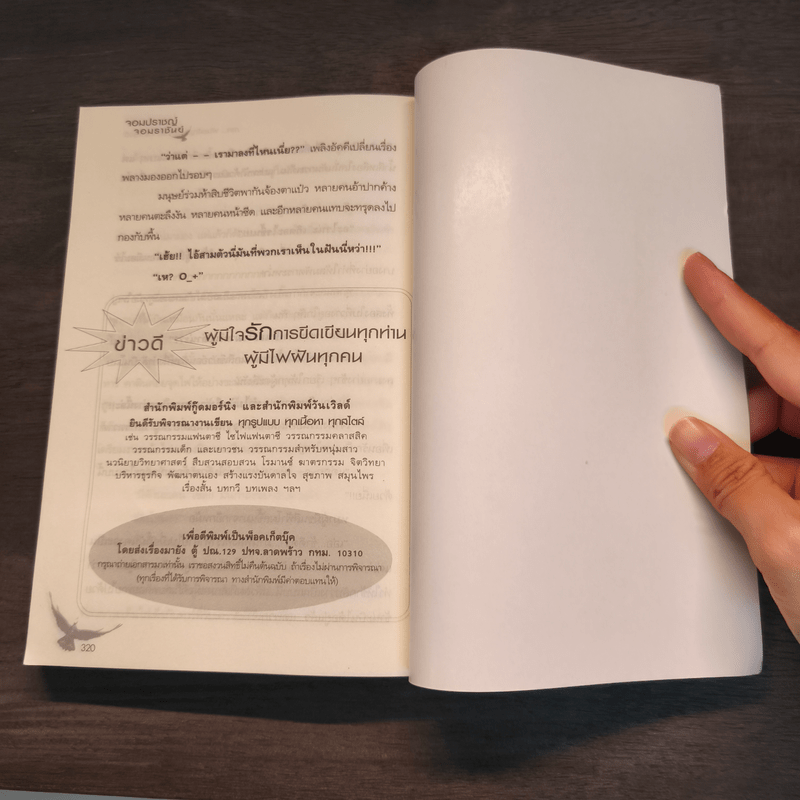 จอมปราชญ์
จอมราชันย์
"ว่าแต่ - - เรามาลงที่ไหนเนี่ย??" เพลิงอัคคีเปลี่ยนเรื่อง
พลางมองออกไปรอบๆ
มนุษย์ร่วมห้าสิบชีวิตพากันจ้องตาแป๋ว หลายคนอ้าปากค้าง
หลายคนตะลึงงัน หลายคนหน้าซีด และอีกหลายคนแทบจะทรุดลงไป
กองกับพื้น
"เฮ้ย!! ไอ้สามตัวนี่มันที่พวกเราเห็นในฝันนี่หว่า!!!"
"เห? O_+"
ข่าวดี
ผู้มีใจรักการขีดเขียนทุกท่าน
ผู้มีไฟฝันทุกคน
สำนักพิมพ์กู๊ดมอร์นิ่ง และสำนักพิมพ์วันเวิลด์
ยินดีรับพิจารณางานเขียน ทุกรูปแบบ ทุกเนื้อหา ทุกสไตล์
เช่น วรรณกรรมแฟนตาซี ไซไฟแฟนตาซี วรรณกรรมคลาสสิค
วรรณกรรมเด็ก และเยาวชน วรรณกรรมสำหรับหนุ่มสาว
นวนิยายวิทยาศาสตร์ สืบสวนสอบสวน โรมานซ์ ฆาตกรรม จิตวิทยา
บริหารธุรกิจ พัฒนาตนเอง สร้างแรงบันดาลใจ สุขภาพ สมุนไพร
เรื่องสั้น บทกวี บทเพลง ฯลฯ
เพื่อตีพิมพ์เป็นพ็อคเก็ตบุ๊ค
โดยส่งเรื่องมายัง ตู้ ปณ.129 ปทจ.ลาดพร้าว กทม. 10310
กรุณาถ่ายเอกสารมาเท่านั้น เราขอสงวนสิทธิ์ไม่คืนต้นฉบับ ถ้าเรื่องไม่ผ่านการพิจารณา
(ทุกเรื่องที่ได้รับการพิจารณา ทางสำนักพิมพ์มีค่าตอบแทนให้)
320